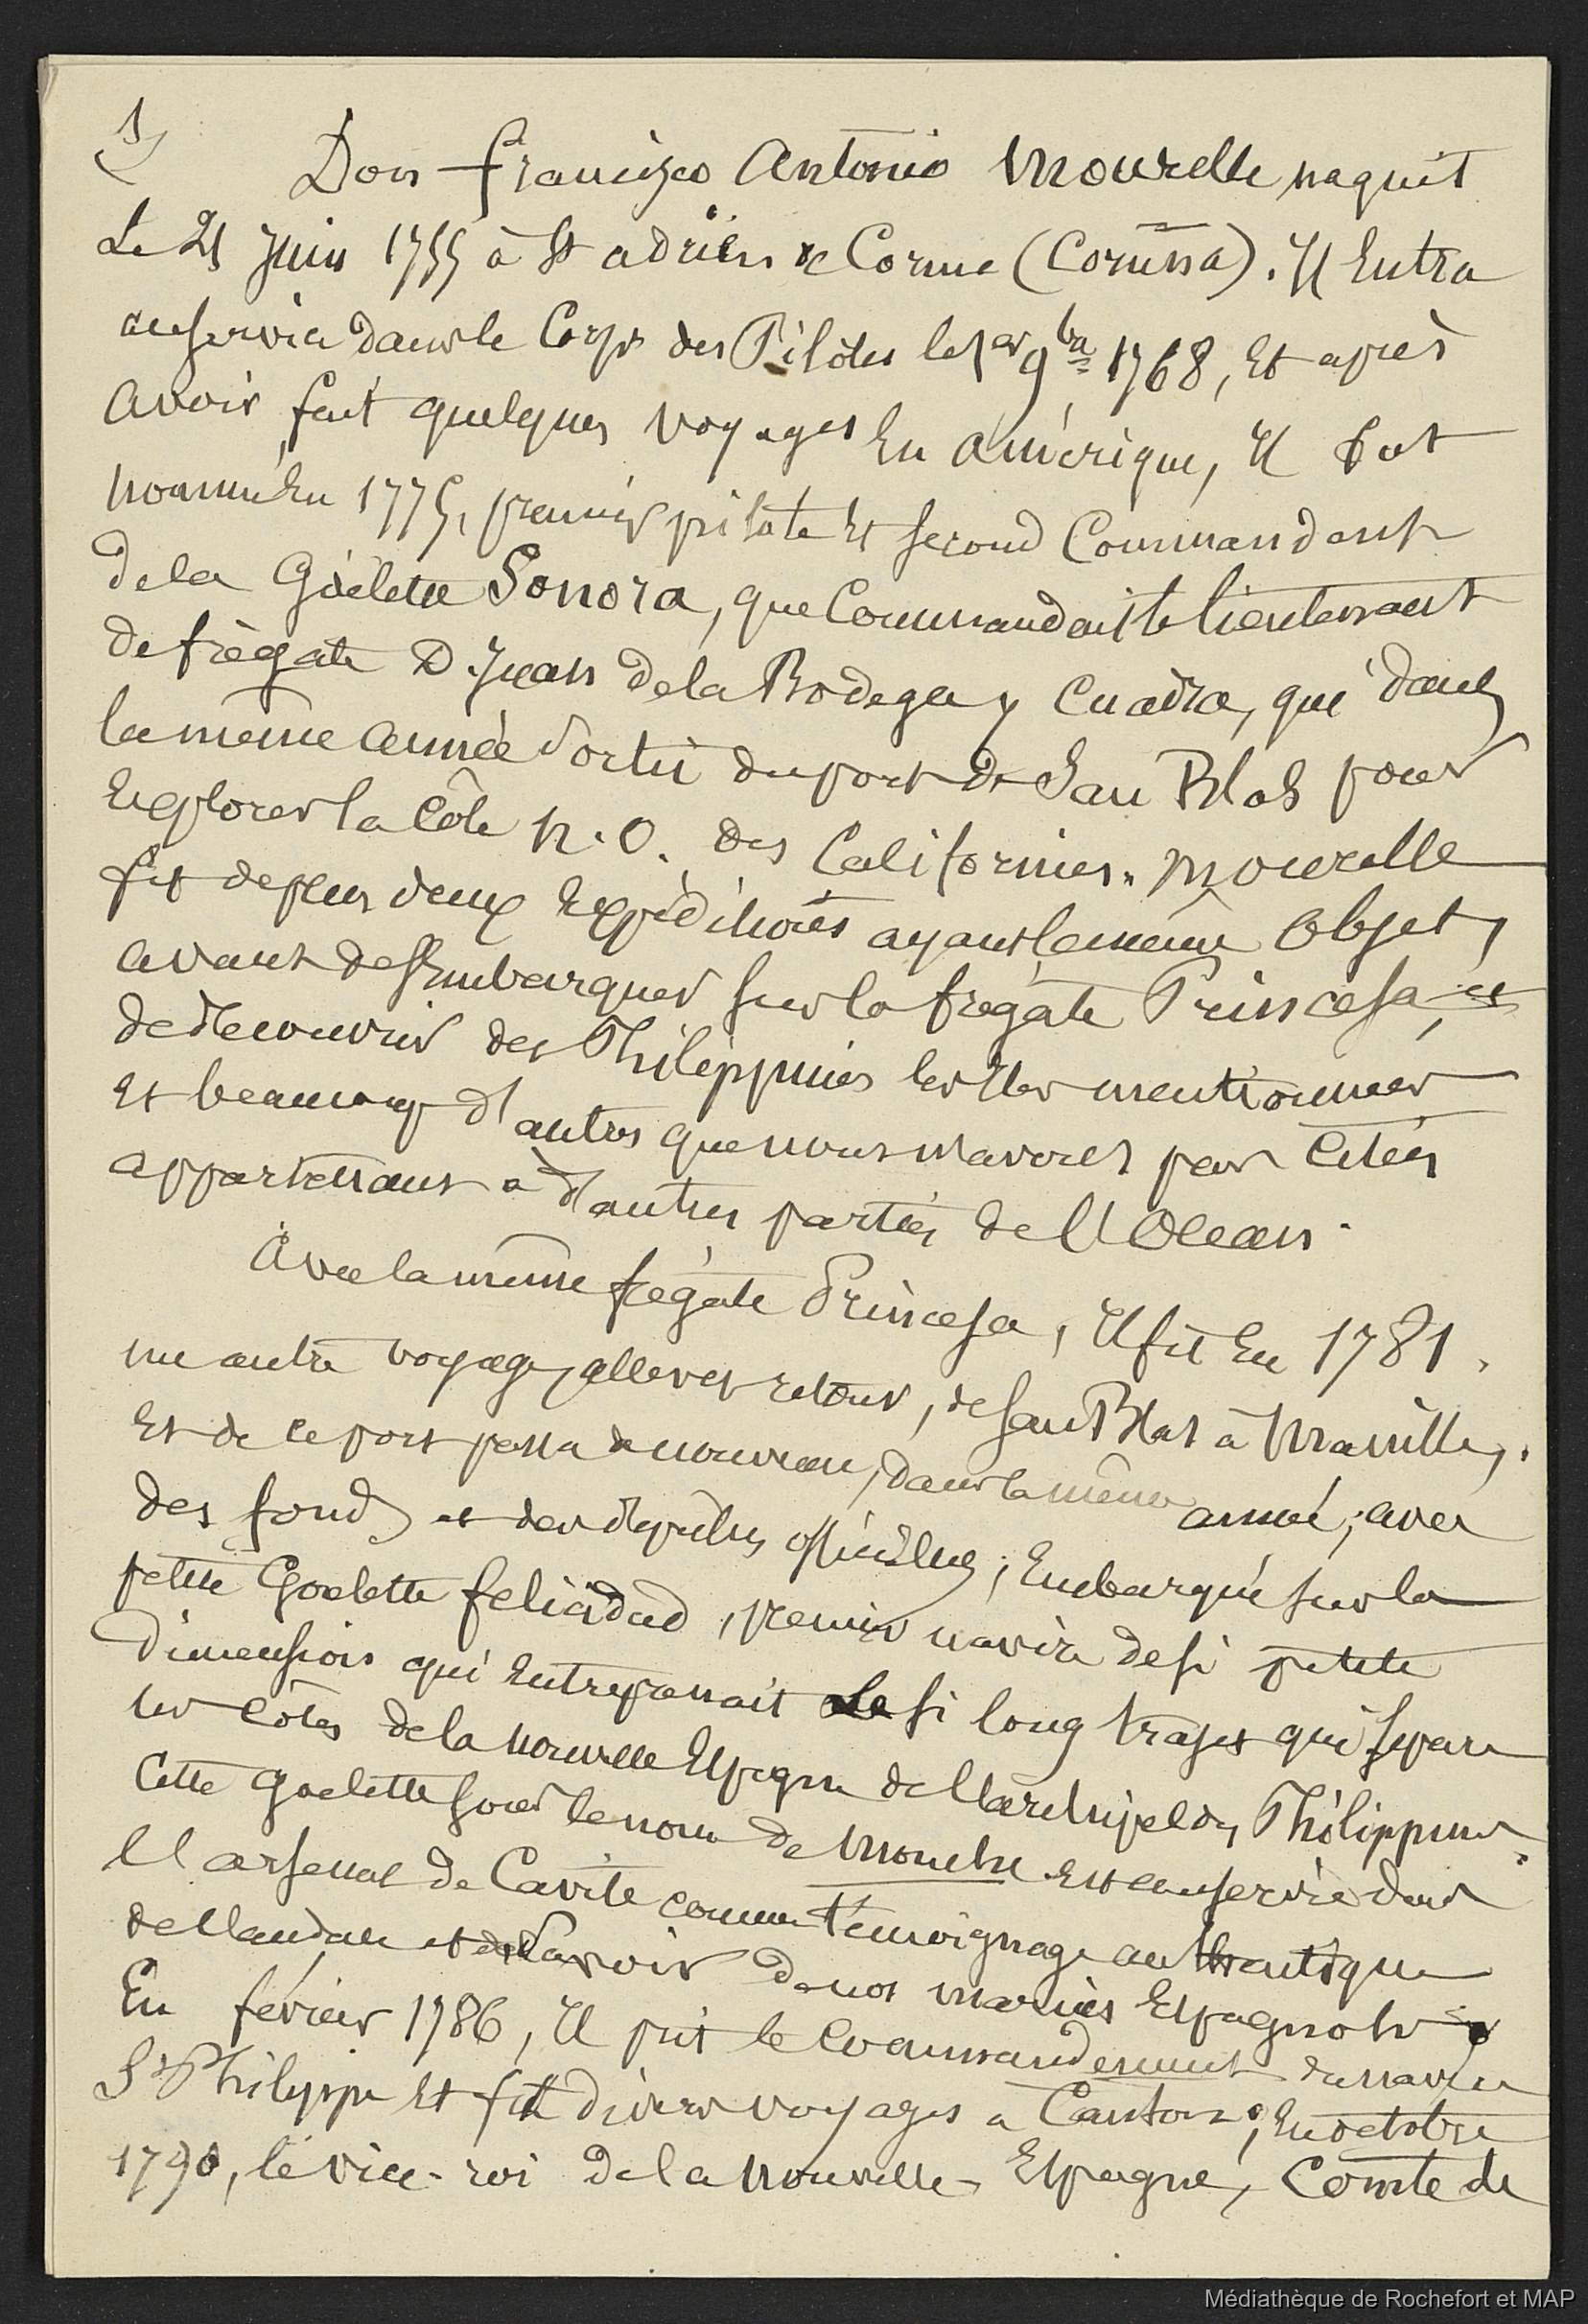 1/
Don Francisco Antonio Mourelle naquit
Le 21 Juin 1755 à St adrien de Corme (Coruña). Il Entra
au service dans le Corps des Pilotes le 1er 9bre 1768, Et après
avoir fait quelques voyages En amérique, Il fut
nommé En 1775, premier pilote Et second Commandant
de la Goëlette Sonora, que Commandait le lieutenant
de frégate D. Juan de la Bodega y Cuadra, qui dans
la même année sortit du port de San Blas pour
Explorer la Côte N.O. des Californies. Mourelle
fit de plus deux Expéditions ayant le même Objet,
avant de s'Embarquer sur la frégate Princesa, et
de découvrir des Philippines les Iles mentionnées
Et beaucoup d'autres que nous n'avons pas Citées
appartenant à d'autres parties de l'Océan.
Avec la même frégate Princesa, Il fit En 1781,
un autre voyage, aller et retour, de San Blas à Manille,
Et de ce port passa de nouveau, dans la même année, avec
des fonds et des dépêches officielles, Embarqué sur la
petite Goelette felicidad, premier navire de si petite
dimension qui Entreprenait le si long trajet qui sépare
les Côtes de la nouvelle Espagne de l'archipel des Philippines.
Cette goelette sous le nom de Mouche est conservée dans
l'arsenal de Cavite comme témoignage authentique
de l'audace et du Savoir de nos marins Espagnols
En février 1786, Il prit le Commandement du navire
St Philippe Et fit divers voyages a Canton; En octobre
1790, le vice-roi de la nouvelle Espagne, Comte de
Médiathèque de Rochefort et MAP